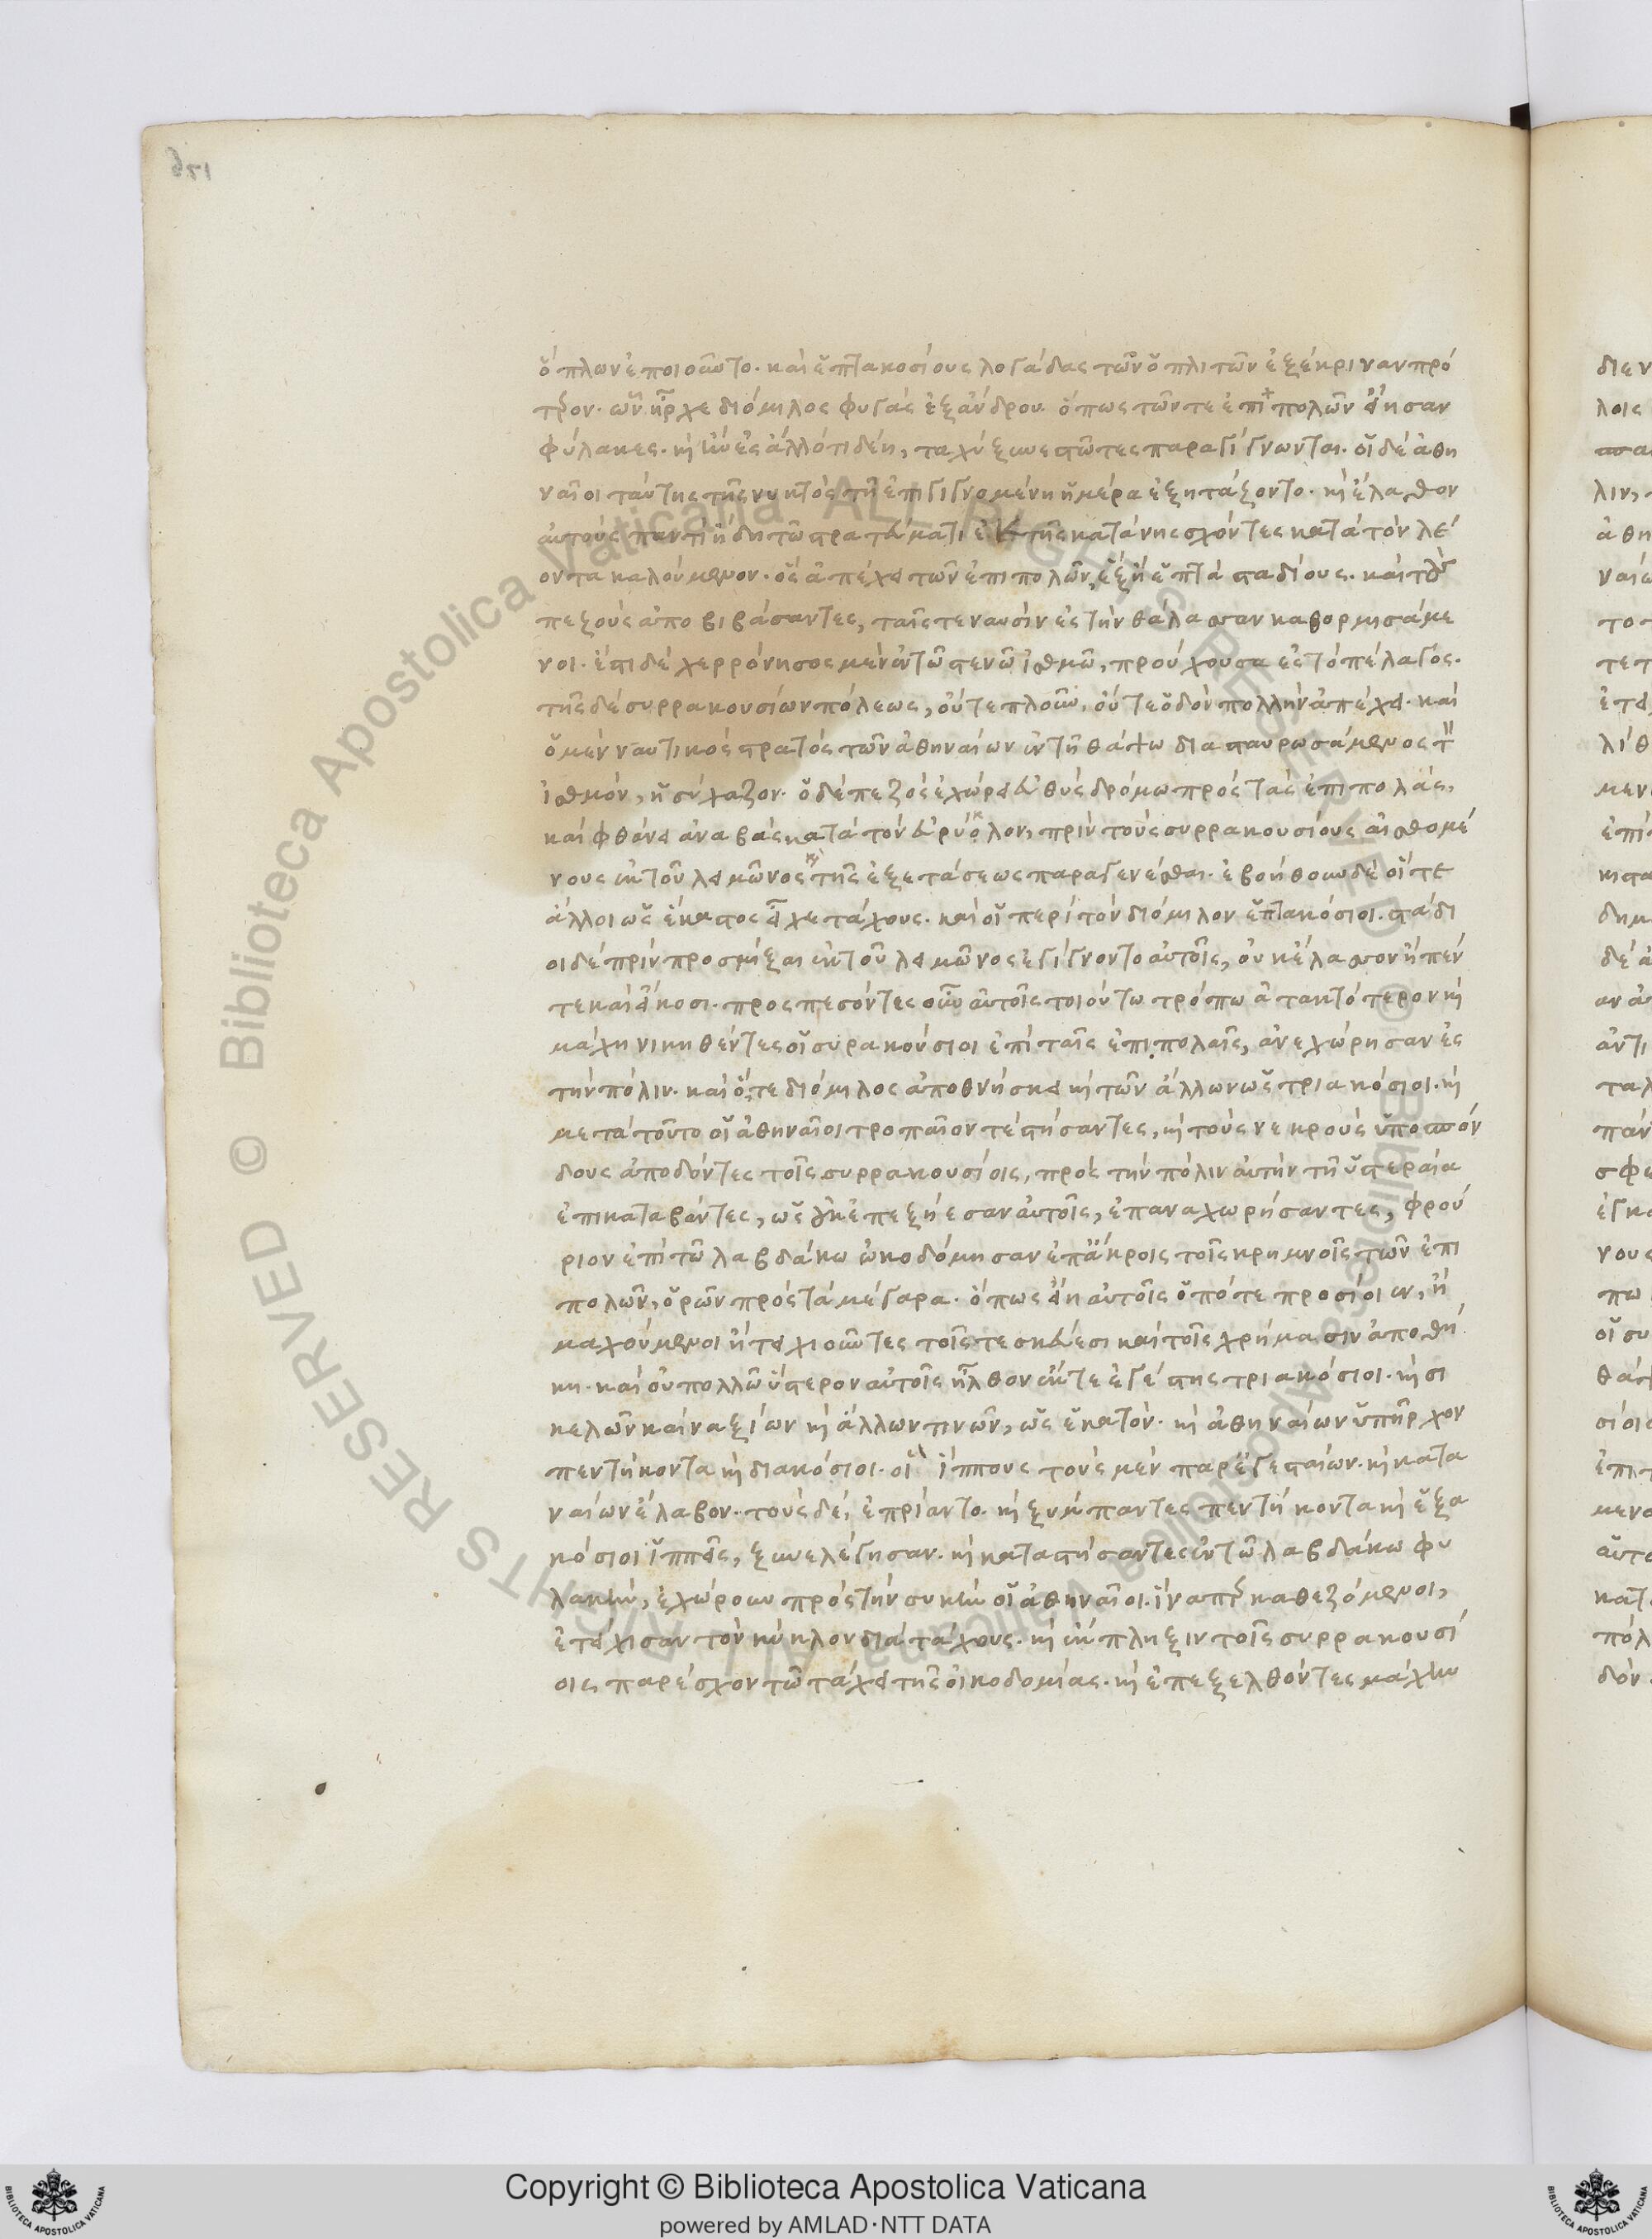 ὅπλων ἐποιοῦντο. καὶ ἑπτακοσίους λογάδας τῶν ὁπλιτῶν ἐξέκριναν πρό
τερον. ὧν ἦρχε διόμιλος φυγὰς ἐξ ἄνδρου ὅπως τῶν τε ἐπιπολῶν εἴησαν
φύλακες. καὶ ἢν ἐς ἄλλό τι δέη, ταχὺ ξυνεστῶτες παραγίγνωνται. οἱ δὲ ἀθη
ναῖοι ταύτης τῆς νυκτὸς τῆ ἐπιγιγνομένη ἡμέρα ἐξητάζοντο. καὶ ἔλαθον
αὐτοὺς παντὶ ἤδη τῶ στρατεύματι ἐκ τῆς κατάνης σχόντες κατὰ τὸν λέ
οντα καλούμενον. ὃς ἀπέχει τῶν ἐπιπολῶν ἓξ ἢ ἑπτὰ σταδίους. καὶ τοὺς
πεζοὺς ἀποβιβάσαντες, ταῖς τε ναυσὶν ἐς τὴν θάλασσαν καθορμισάμε
νοι. ἔστι δὲ χερρόνησος μὲν ἐν τῶ στενῶ ἰσθμῶ, προύχουσα ἐς τὸ πέλαγος.
τῆς δὲ συρρακουσίων πόλεως, οὔτε πλοῦν, οὔτε ὁδὸν πολλὴν ἀπέχει. καὶ
ὁ μὲν ναυτικὸς στρατὸς τῶν ἀθηναίων ἐν τῆ θάψω διασταυρωσάμενος τὸν
ἰσθμόν, ἡσύχαζον. ὁ δὲ πεζὸς ἐχώρει εὐθὺς δρόμω πρὸς τὰς ἐπιπολάς,
καὶ φθάνει ἀναβὰς κατὰ τὸν εὐρύολον, πρὶν τοὺς συρρακουσίους αἰσθομέ
νους ἐκ τοῦ λειμῶνος καὶ τῆς ἐξετάσεως παραγενέσθαι. ἐβοήθουν δὲ οἵ τε
ἄλλοι ὡς ἕκαστος εἶχε τάχους. καὶ οἱ περὶ τὸν διόμιλον ἑπτακόσιοι. στάδι
οι δὲ πρὶν προσμίξαι ἐκ τοῦ λειμῶνος ἐγίγνοντο αὐτοῖς, οὐκ ἔλασσον ἢ πέν
τε καὶ εἴκοσι. προσπεσόντες οὖν αὐτοῖς τοιούτω τρόπω ἀτακτότερον καὶ
μάχη νικηθέντες οἱ συρακούσιοι ἐπὶ ταῖς ἐπιπολαῖς, ἀνεχώρησαν ἐς
τὴν πόλιν. καὶ ὅ τε διόμιλος ἀποθνήσκει καὶ τῶν ἄλλων ὡς τριακόσιοι. καὶ
μετὰ τοῦτο οἱ ἀθηναῖοι τροπαῖον τε στήσαντες, καὶ τοὺς νεκροὺς ὑποσπόν
δους ἀποδόντες τοῖς συρρακουσίοις, πρὸς τὴν πόλιν αὐτὴν τῆ ὑστεραία
ἐπικαταβάντες, ὡς οὐκ ἐπεξήεσαν αὐτοῖς, ἐπαναχωρήσαντες, φρού
ριον ἐπὶ τῶ λαβδάκω ὠκοδόμησαν ἐπ᾽ ἄκροις τοῖς κρημνοῖς τῶν ἐπι
πολῶν, ὁρῶν πρὸς τὰ μέγαρα. ὅπως εἴη αὐτοῖς ὁπότε προσίοιεν, ἢ
μαχούμενοι ἢ τειχιοῦντες τοῖς τε σκεύεσι καὶ τοῖς χρήμασιν ἀποθή
κη. καὶ οὐ πολλῶ ὕστερον αὐτοῖς ἦλθον ἔκ τε ἐγέστης τριακόσιοι. καὶ σι
κελῶν καὶ ναξίων καὶ ἄλλων τινῶν, ὡς ἑκατόν. καὶ ἀθηναίων ὑπῆρχον
πεντήκοντα καὶ διακόσιοι. οἷς ἵππους τοὺς μὲν παρ᾽ ἐγεσταίων. καὶ κατα
ναίων ἔλαβον. τοὺς δὲ, ἐπρίαντο. καὶ ξύμπαντες πεντήκοντα καὶ ἑξα
κόσιοι ἱππεῖς, ξυνελέγησαν. καὶ καταστήσαντες ἐν τῶ λαβδάκω φυ
λακὴν, ἐχώρουν πρὸς τὴν συκὴν οἱ ἀθηναῖοι. ἵναπερ καθεζόμενοι,
ἐτείχισαν τὸν κύκλον διὰ τάχους. καὶ ἔκπληξιν τοῖς συρρακουσί
οις παρέσχον τῶ τάχει τῆς οἰκοδομίας. καὶ ἐπεξελθόντες μάχην
Copyright © Biblioteca Apostolica Vaticana
powered by AMLAD·NTT DATA